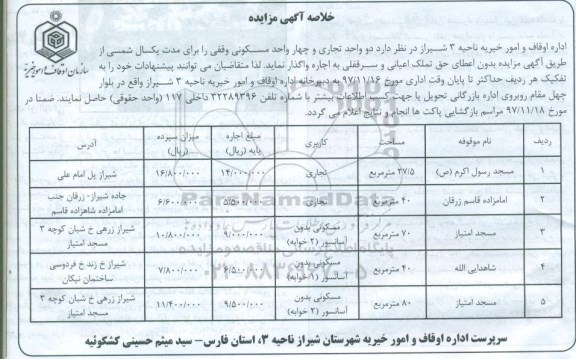 خلاصه آگهی مزایده
سازمان اوقاف و امور خیریه
اداره اوقاف و امور خیریه ناحیه ۳ شیراز در نظر دارد دو واحد تجاری و چهار واحد مسکونی وقفی را برای مدت یکسال شمسی از
طریق آگهی مزایده بدون اعطای حق تملک اعیانی و سرقفلی به اجاره واگذار نماید. لذا متقاضیان می توانند پیشنهادات خود را به
تفکیک هر ردیف حداکثر تا پایان وقت اداری مورخ ۹۷/۱۱/۱۶ به دبیرخانه اداره اوقاف و امور خیریه ناحیه ۳ شیراز واقع در بلوار
چهل مقام روبروی اداره بازرگانی تحویل یا جهت کسب اطلاعات بیشتر با شماره تلفن ۳۲۲۸۹۳۹۶ داخلی ۱۱۷ (واحد حقوقی) حاصل نمایند. ضمنا در
مورخ ۹۷/۱۱/۱۸ مراسم بازگشایی پاکت ها انجام و نتایج اعلام می گردد.
ردیف نام موقوفه مساحت کاربری مبلغ اجاره پایه (ریال) میزان سپرده (ریال) آدرس
۱ مسجد رسول اکرم (ص) ۲۷/۵ مترمربع تجاری ۱۴/۰۰۰/۰۰۰ ۱۶/۸۰۰/۰۰۰ شیراز پل امام علی
۲ امامزاده قاسم زرقان ۴۰ مترمربع تجاری ۵/۵۰۰/۰۰۰ ۶/۶۰۰/۰۰۰ جاده شیراز- زرقان جنب امامزاده شاهزاده قاسم
۳ مسجد امتیاز ۷۰ مترمربع مسکونی بدون آسانسور (۲ خوابه) ۹/۰۰۰/۰۰۰ ۱۰/۸۰۰/۰۰۰ شیراز زرهی خ شبان کوچه ۳ مسجد امتیاز
۴ شاهدایی الله ۴۰ مترمربع مسکونی بدون آسانسور (۱ خوابه) ۶/۵۰۰/۰۰۰ ۷/۸۰۰/۰۰۰ شیراز خ زند خ فردوسی ساختمان نیکان
۵ مسجد امتیاز ۸۰ مترمربع مسکونی بدون آسانسور (۲ خوابه) ۹/۵۰۰/۰۰۰ ۱۱/۴۰۰/۰۰۰ شیراز زرهی خ شبان کوچه ۳ مسجد امتیاز
ParsNamadData
پایگاه اطلاع رسانی مناقصه و مزایده
۰۲۱-۸۸۳۴۹۶۷۰-۵
سرپرست اداره اوقاف و امور خیریه شهرستان شیراز ناحیه ۳، استان فارس – سید میثم حسینی کشکوئیه